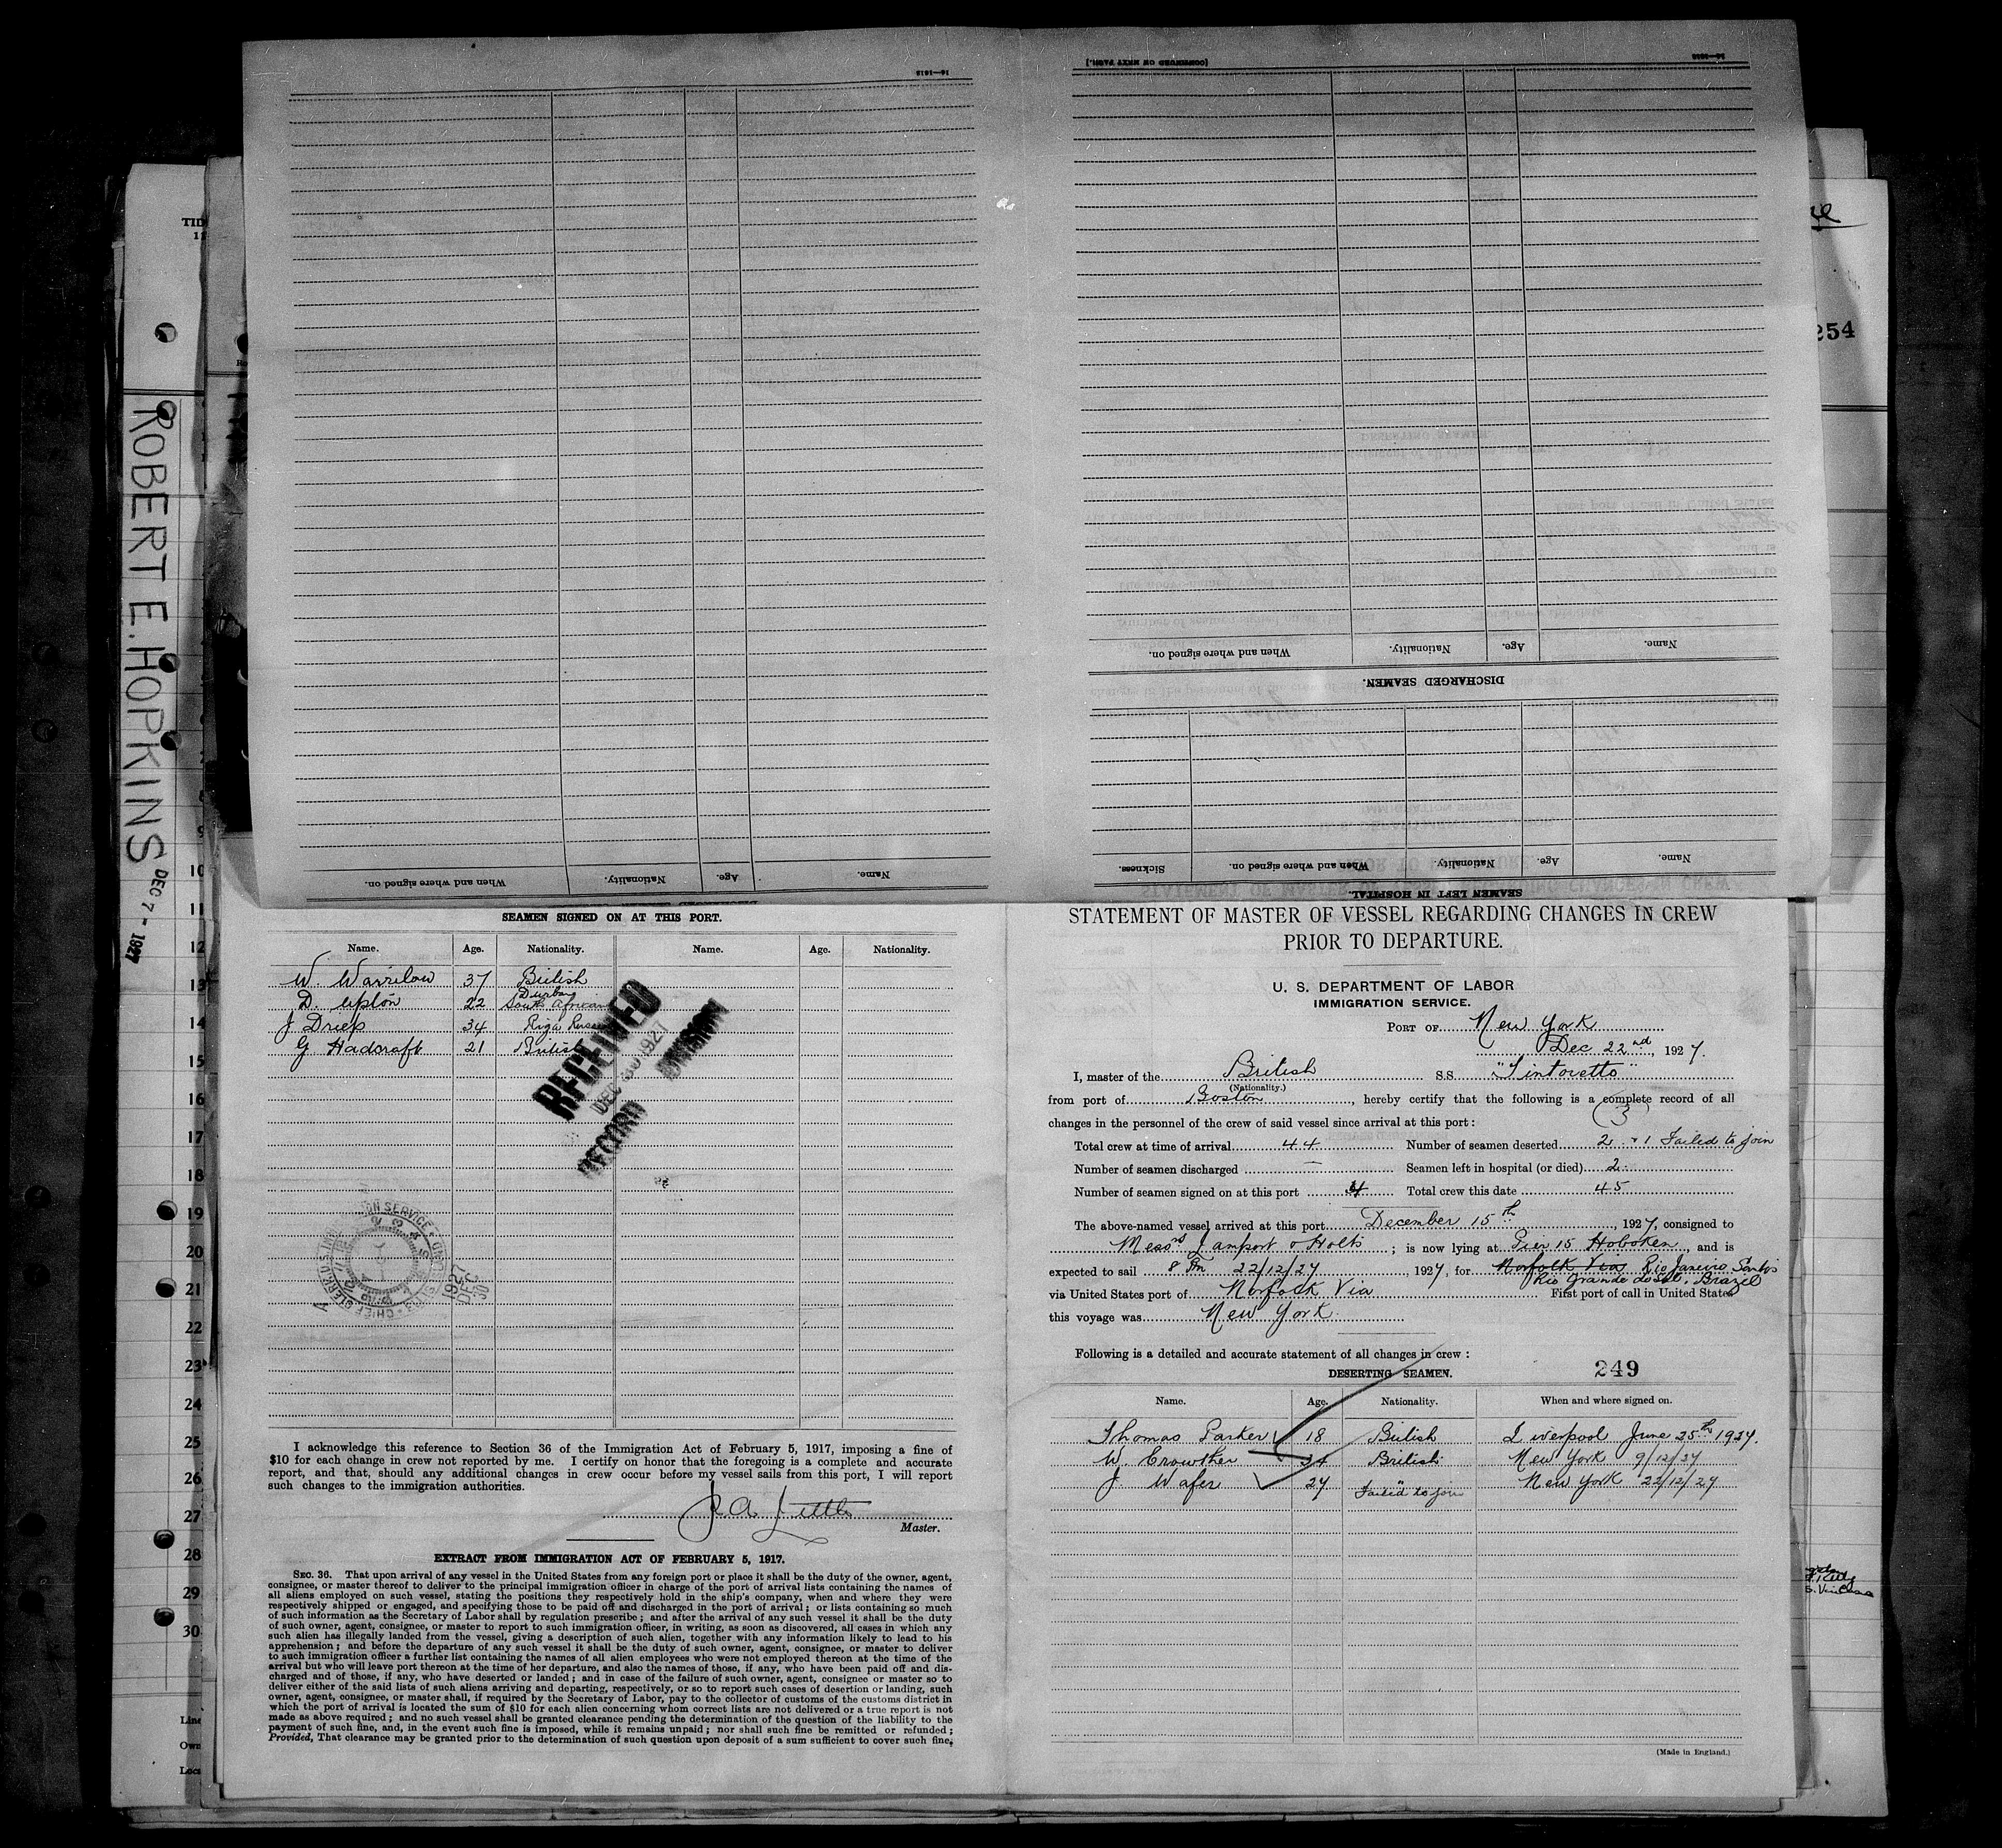 16—1618
[CONTINUED ON NEXT PAGE.]
16—1618
Name.
Age.
Nationality.
When and where signed on.
DISCHARGED SEAMEN.
Name.
Age.
Nationality.
When and where signed on.
SEAMEN LEFT IN HOSPITAL.
Name.
Age.
Nationality.
When and where signed on.
Sickness.
TID
254
ROBERT E. HOPKINS DEC 7 - 1927
9
10
11
12
13
14
15
16
17
18
19
20
21
22
23
24
25
26
27
28
29
30
Line
Own
Loca
SEAMEN SIGNED ON AT THIS PORT.
Name. Age. Nationality. Name. Age. Nationality.
W. Warrilow 37 British
D. Upton 22 Durban South African
J Driep 34 Riga
G Hadcraft 21 British
RECEIVED
DEC 30 1927
RECORD DIVISION
I acknowledge this reference to Section 36 of the Immigration Act of February 5, 1917, imposing a fine of
$10 for each change in crew not reported by me. I certify on honor that the foregoing is a complete and accurate
report, and that, should any additional changes in crew occur before my vessel sails from this port, I will report
such changes to the immigration authorities.
J. A. Little
Master.
EXTRACT FROM IMMIGRATION ACT OF FEBRUARY 5, 1917.
SEC. 36. That upon arrival of any vessel in the United States from any foreign port or place it shall be the duty of the owner, agent,
consignee, or master thereof to deliver to the principal immigration officer in charge of the port of arrival lists containing the names of
all aliens employed on such vessel, stating the positions they respectively hold in the ship's company, when and where they were
respectively shipped or engaged, and specifying those to be paid off and discharged in the port of arrival; or lists containing so much
of such information as the Secretary of Labor shall by regulation prescribe; and after the arrival of any such vessel it shall be the duty
of such owner, agent, consignee, or master to report to such immigration officer, in writing, as soon as discovered, all cases in which any
such alien has illegally landed from the vessel, giving a description of such alien, together with any information likely to lead to his
apprehension; and before the departure of any such vessel it shall be the duty of such owner, agent, consignee, or master to deliver
to such immigration officer a further list containing the names of all alien employees who were not employed thereon at the time of the
arrival but who will leave port thereon at the time of her departure, and also the names of those, if any, who have been paid off and dis-
charged and of those, if any, who have deserted or landed; and in case of the failure of such owner, agent, consignee or master so to
deliver either of the said lists of such aliens arriving and departing, respectively, or so to report such cases of desertion or landing, such
owner, agent, consignee, or master shall, if required by the Secretary of Labor, pay to the collector of customs of the customs district in
which the port of arrival is located the sum of $10 for each alien concerning whom correct lists are not delivered or a true report is not
made as above required; and no such vessel shall be granted clearance pending the determination of the question of the liability to the
payment of such fine, and, in the event such fine is imposed, while it remains unpaid; nor shall such fine be remitted or refunded;
Provided, That clearance may be granted prior to the determination of such question upon deposit of a sum sufficient to cover such fine,
STATEMENT OF MASTER OF VESSEL REGARDING CHANGES IN CREW
PRIOR TO DEPARTURE.
U. S. DEPARTMENT OF LABOR
IMMIGRATION SERVICE.
PORT OF New York
Dec 22nd, 1927.
I, master of the British S.S. "Tintoretto"
(Nationality.)
from port of Boston, hereby certify that the following is a complete record of all
(3)
changes in the personnel of the crew of said vessel since arrival at this port:
Total crew at time of arrival 44 Number of seamen deserted 2 + 1 Failed to join
Number of seamen discharged — Seamen left in hospital (or died) 2
Number of seamen signed on at this port 4 Total crew this date 45
The above-named vessel arrived at this port December 15th, 1927, consigned to
Messrs Lamport & Holts; is now lying at Pier 15 Hoboken, and is
expected to sail 8 Pm 22/12/27, 1927, for Norfolk Via Rio Janeiro Santos
Rio Grande do Sul, Brazil
via United States port of Norfolk Via First port of call in United States
this voyage was New York
Following is a detailed and accurate statement of all changes in crew:
DESERTING SEAMEN. 249
Name. Age. Nationality. When and where signed on.
Thomas Parker 18 British Liverpool June 25th 1927.
W. Crowther 34 British New York 9/12/27
J. Wafer 27 " Failed to join New York 22/12/27
(Made in England.)